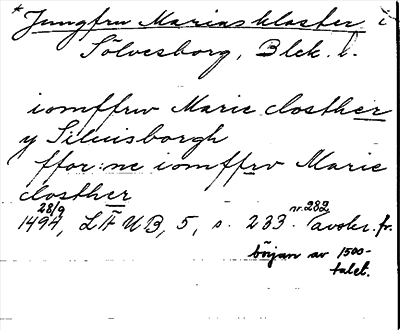 * Jungfru Marias kloster i
Sölvesborg, Blek. l.
iomffrw Marie closther
y Siluisborgh
ffor:ne iomffrv Marie
closther
28/9
1494, LÄUB, 5, s. 283. nr. 282 (avskr. fr.
början av 1500-
talet.